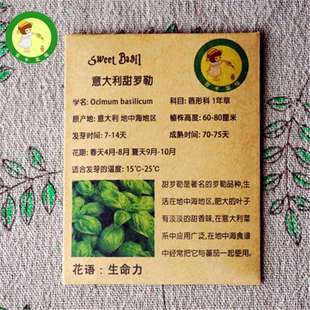 Sweet Basil
意大利甜罗勒
学名: Ocimum basilicum 科目: 唇形科 1年草
原产地: 意大利 地中海地区 植株高度: 60-80厘米
发芽时间: 7-14天 成熟时间: 70-75天
花期: 春天4月-8月 夏天9月-10月
适合发芽的温度: 15°C-25°C
甜罗勒是著名的罗勒品种,生
活在地中海地区,肥大的叶子
有淡淡的甜香味,在意大利菜
系中应用广泛,在地中海食谱
中经常把它与番茄一起使用。
花语: 生命力